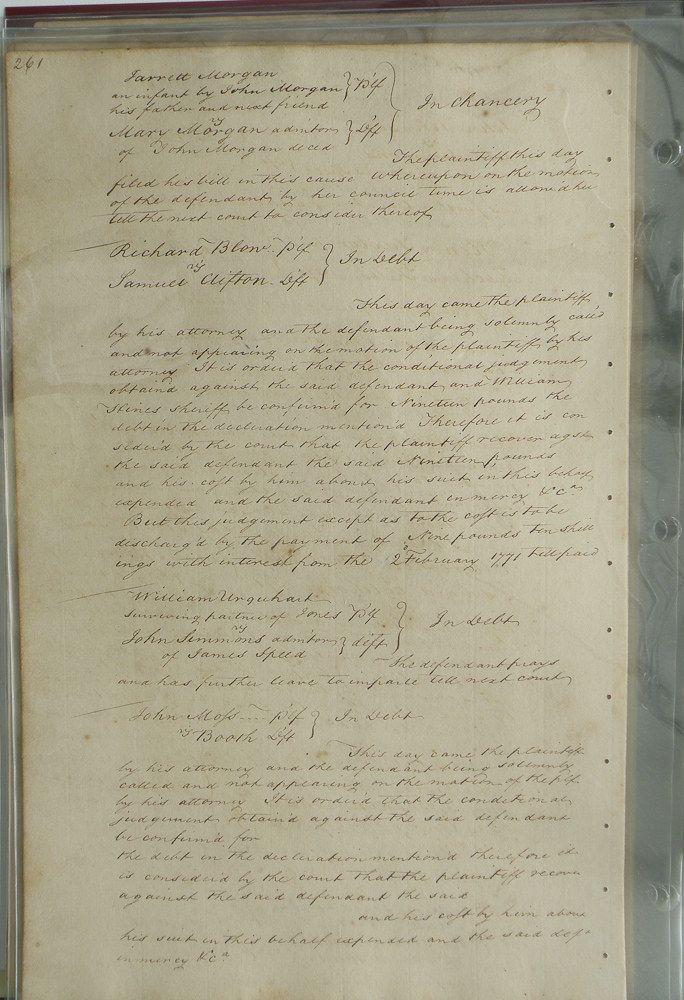 261
Jarrett Morgan
an infant by John Morgan } Plf
his father and next friend
vs } In Chancery
Mary Morgan admitors } Dft
of John Morgan deced
The plaintiff this day
filed his bill in this cause whereupon on the motion
of the defendant by her council time is allowed her
till the next court to consider thereof
Richard Blow Plf
vs } In Debt
Samuel Clifton Dft
This day came the plaintiff
by his attorney and the defendant being solemnly called
and not appearing on the motion of the plaintiff by his
attorney It is order'd that the conditional judgement
obtaind against the said defendant and William
Hines sheriff be confirm'd for Nineteen pounds the
debt in the declaration mention'd Therefore it is con
sider'd by the court that the plaintiff recover agst
the said defendant the said Nineteen pounds
and his cost by him about his suit in this behalf
expended and the said defendant in mercy &ca
But this judgement except as to the cost is to be
discharg'd by the payment of Nine pounds ten shill
ings with interest from the 2d February 1771 till paid
William Urquhart
surviving partner of Jones Plf
vs } In Debt
John Simmons admitor } deft
of James Speed
The defendant prays
and has further leave to imparle till next court
John Moss Plf } In Debt
vs Booth Dft
This day came the plaintiff
by his attorney and the defendant being solemnly
called and not appearing on the motion of the plf
by his attorney It is order'd that the conditional
judgement obtain'd against the said defendant
be confirm'd for
the debt in the declaration mention'd therefore it
is consider'd by the court that the plaintiff recover
against the said defendant the said
and his cost by him about
his suit in this behalf expended and the said deft
in mercy &ca